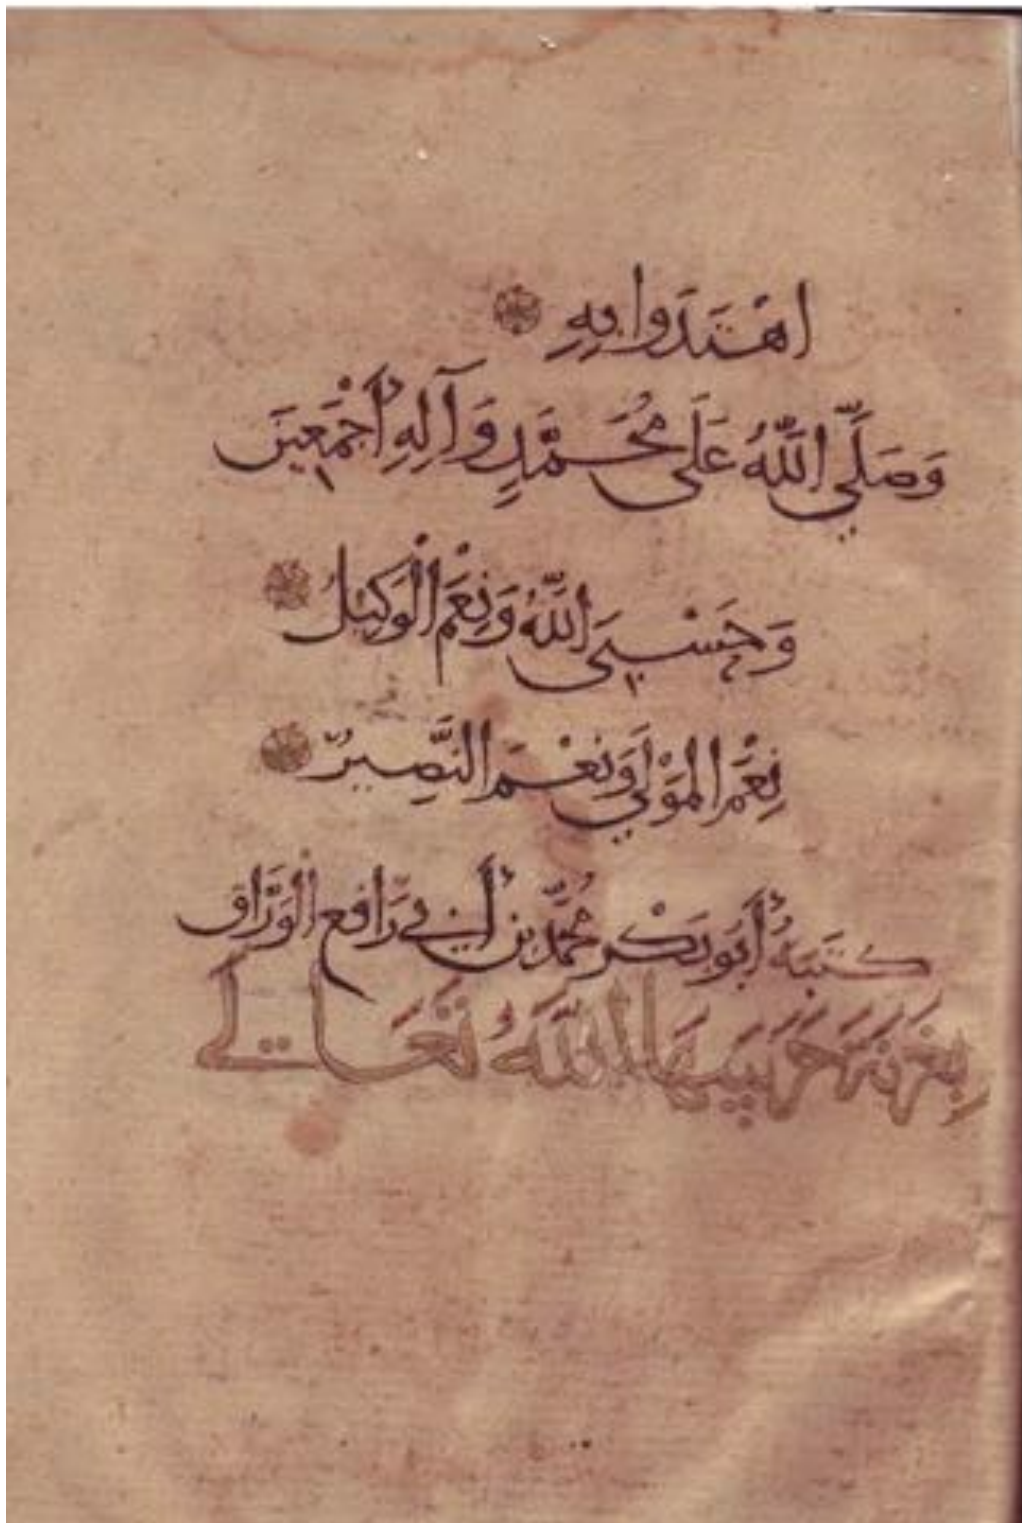 اهْتَدَوا بِهِ
وَصَلَّي اللَّهُ عَلَى مُحَمَّدٍ وَآلِهِ أَجْمَعِينَ
وَحَسْبِيَ اللَّهُ وَنِعْمَ الْوَكِيلُ
نِعْمَ الْمَوْلَي وَنِعْمَ النَّصِيرُ
كتبَهُ أَبُو بَكْر مُحَمَّد بن أَبي رَافع الْوَرَّاق
بِغَزْنَةَ حَرَسَهَا اللَّهُ تَعَالَي